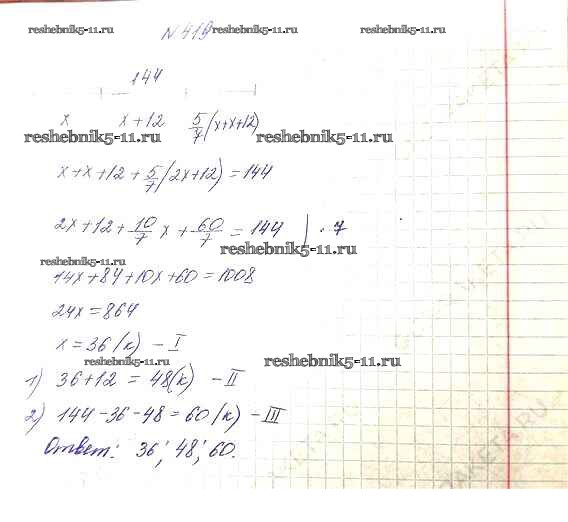 reshebnik5-11.ru № 419 reshebnik5-11.ru reshebnik5-11.ru
144
x x + 12 5/7(x+x+12)
reshebnik5-11.ru reshebnik5-11.ru
x+x+12+5/7(2x+12)=144
2x+12+10/7x+60/7=144 | · 7
reshebnik5-11.ru
reshebnik5-11.ru
14x+84+10x+60=1008
24x=864
x=36(к) – I
reshebnik5-11.ru reshebnik5-11.ru
1) 36+12=48(к) – II
2) 144-36-48=60(к) – III
Ответ: 36; 48; 60.